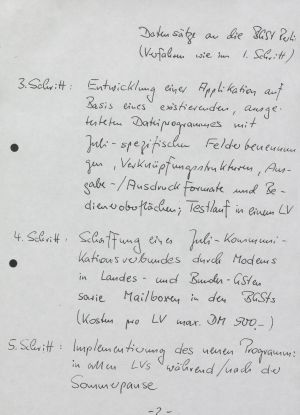 Datensätze an die BGSt Perli
(Verfahren wie im 1. Schritt)
3. Schritt: Entwicklung einer Applikation auf
Basis eines existierenden, ausge-
testeten Dateiprogrammes mit
Juli-spezifischen Felderbenennun
gen, Verknüpfungsstrukturen, Aus-
gabe-/Ausdruckformate und Be-
dieneroberflächen; Testlauf in einem LV
4. Schritt: Schaffung eines Juli-Kommuni-
kationsverbundes durch Modems
in Landes- und Bundes-GSten
sowie Mailboxen in den BGSts
(Kosten pro LV max. DM 900,-)
5. Schritt: Implementierung des neuen Programms
in allen LVs während/nach der
Sommerpause
-2-